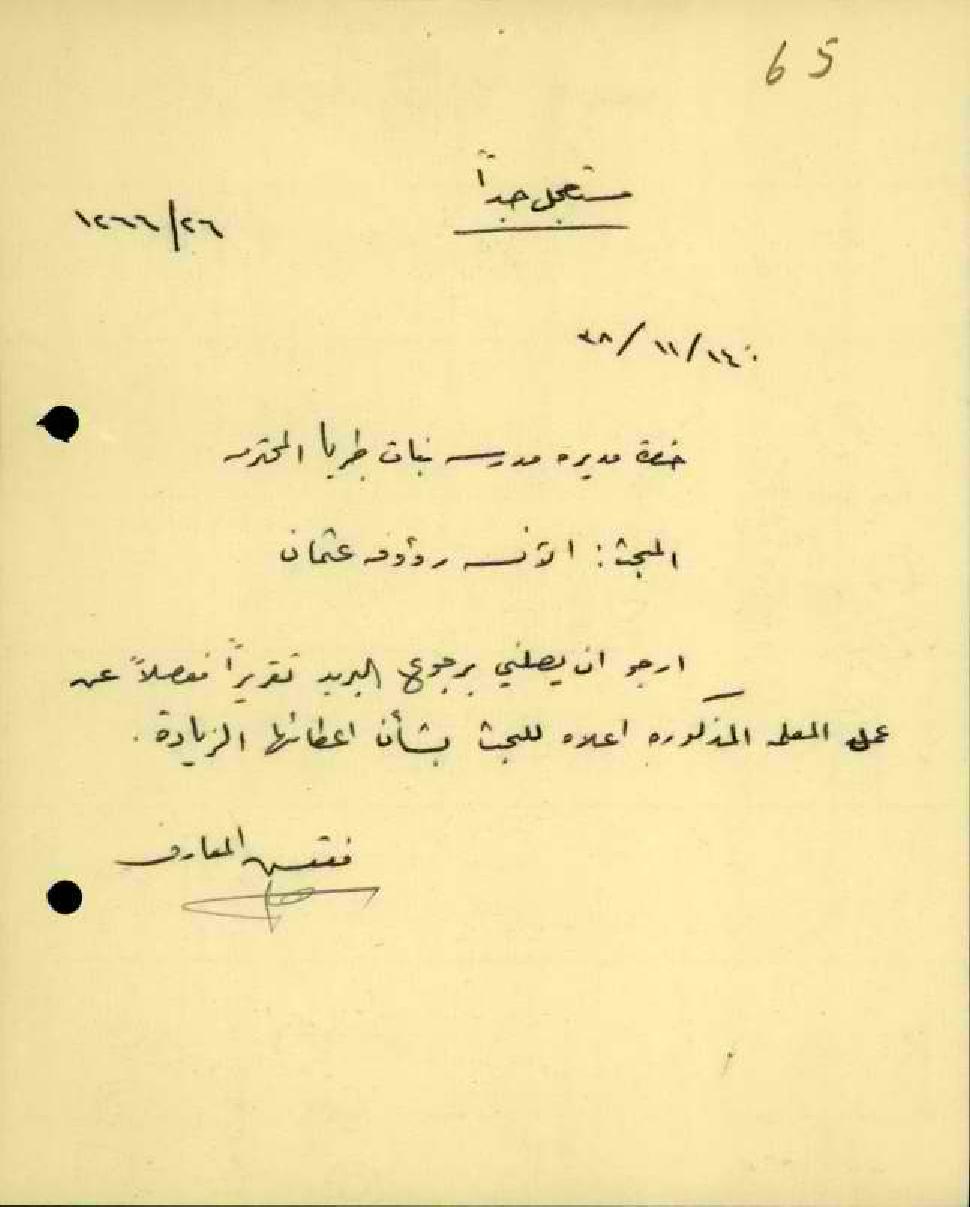 65
مستعجل جداً
١٢٦٦/٢٦
١٤/١١/٣٨
حضرة مديره مدرسه بنات طبريا المحترمه
المبحث: الآنسه رؤوفه عثمان
ارجو ان يصلني برجوع البريد تقريراً مفصلاً عن
عمل المعلمه المذكوره اعلاه للبحث بشأن اعطائها الزيادة.
مفتش المعارف